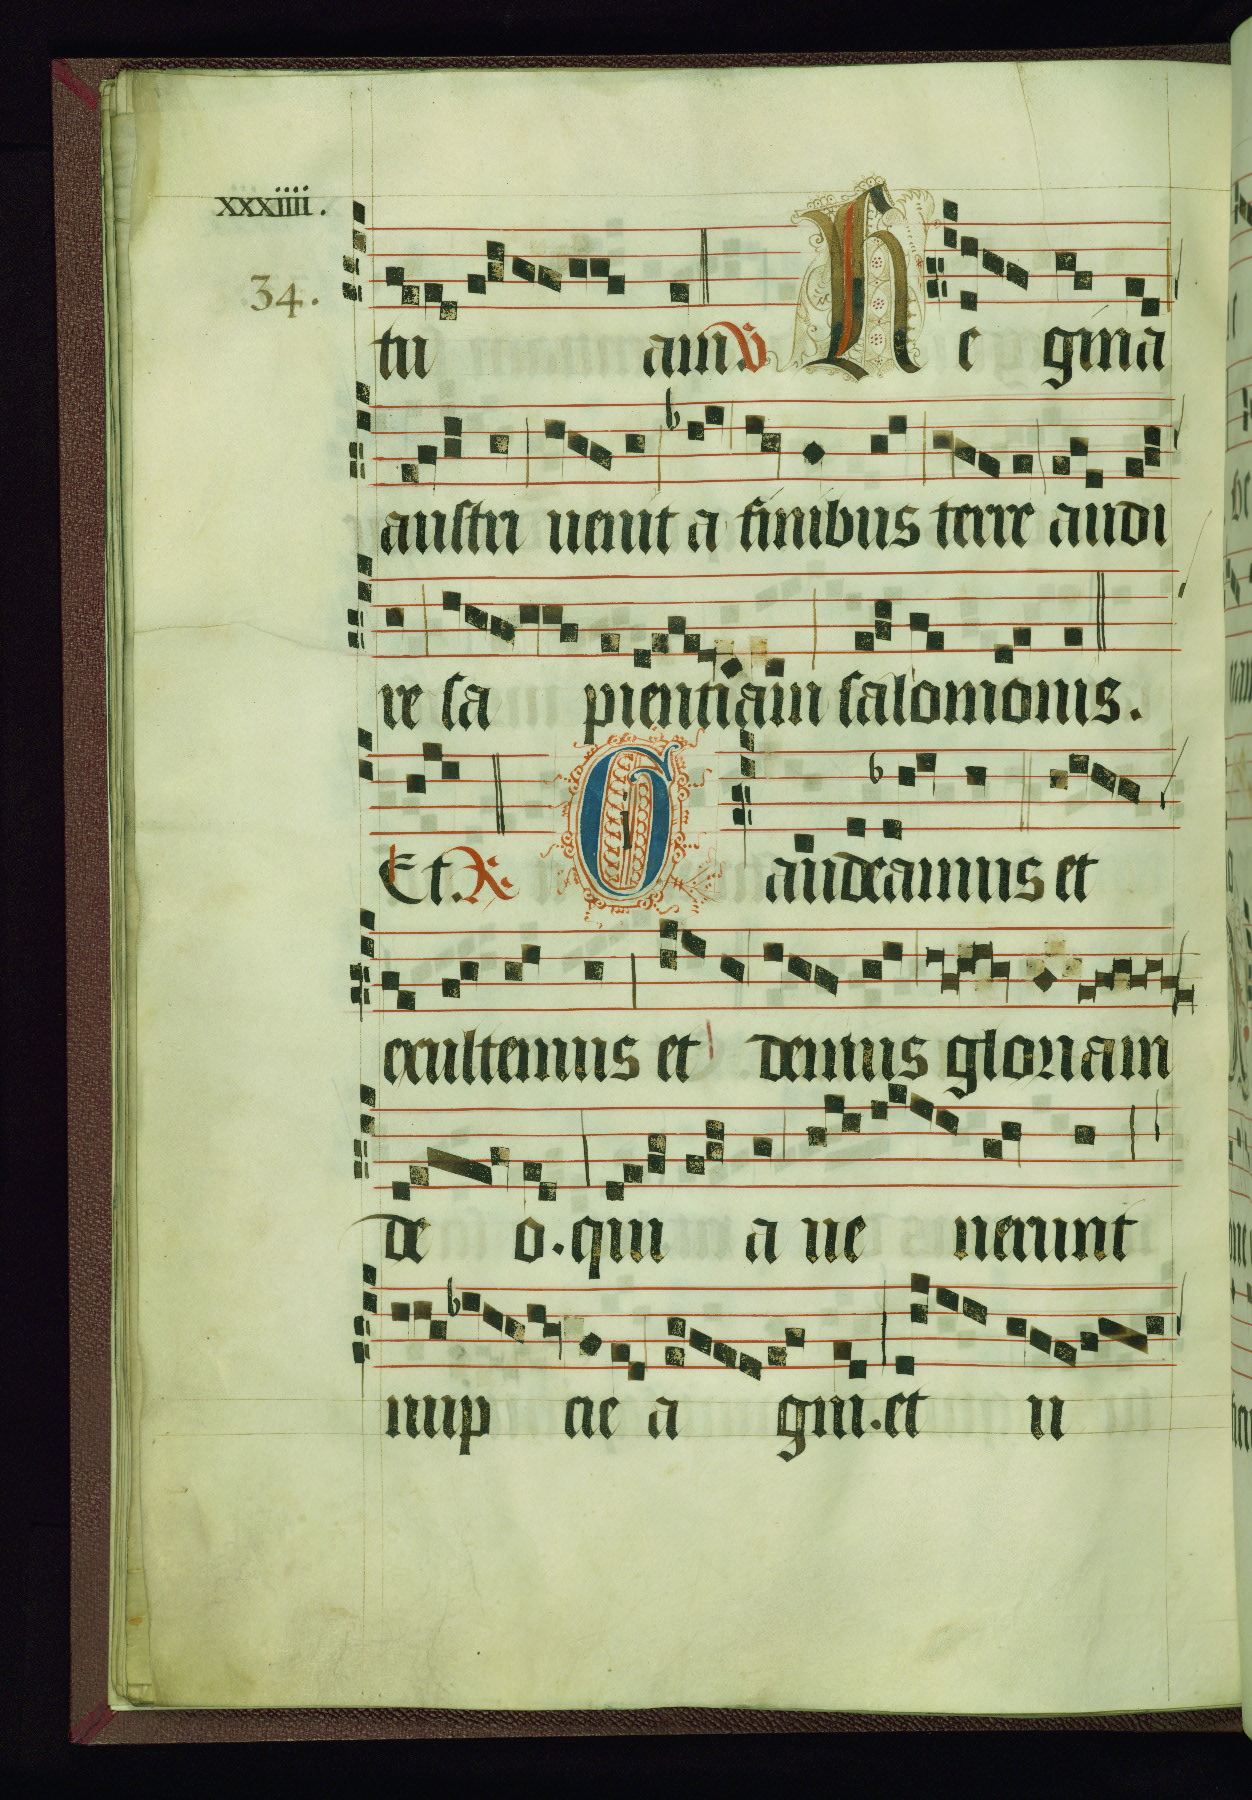 xxxiiii.
34.
tu am. V Re gina
austri uenit a finibus terre audi
re sa pientiam salomonis.
Et. R. Gaudeamus et
exultemus et demus gloriam
de o. qui a ue nerunt
nup cie a gni. et u